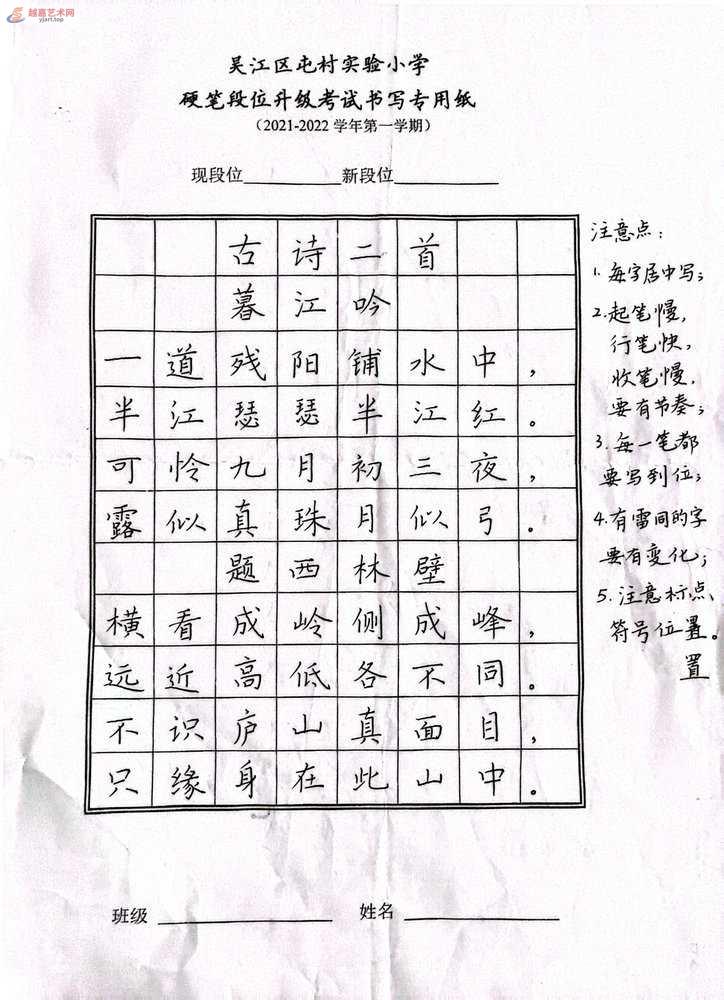 越嘉艺术网
yjart.top
吴江区屯村实验小学
硬笔段位升级考试书写专用纸
（2021-2022 学年第一学期）
现段位 新段位
古诗二首
暮江吟
一道残阳铺水中，
半江瑟瑟半江红。
可怜九月初三夜，
露似真珠月似弓。
题西林壁
横看成岭侧成峰，
远近高低各不同。
不识庐山真面目，
只缘身在此山中。
注意点：
1. 每字居中写；
2. 起笔慢，
行笔快，
收笔慢，
要有节奏；
3. 每一笔都
要写到位；
4. 有雷同的字
要有变化；
5. 注意标点
符号位置。
置
班级 姓名